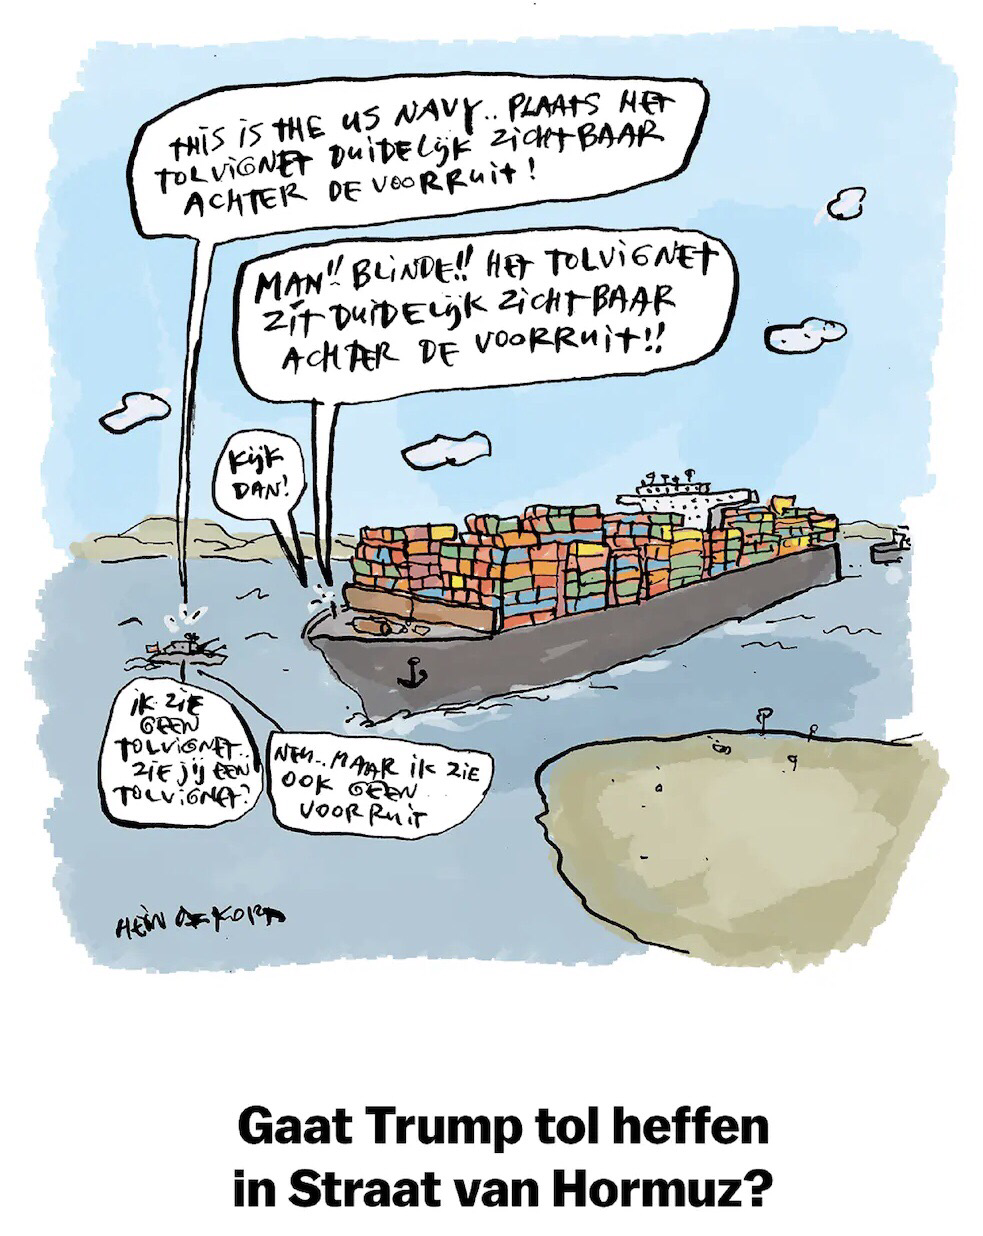 THIS IS THE US NAVY.. PLAATS HET
TOLVIGNET DUIDELIJK ZICHTBAAR
ACHTER DE VOORRUIT!
MAN!! BLINDE!! HET TOLVIGNET
ZIT DUIDELIJK ZICHTBAAR
ACHTER DE VOORRUIT!!
KIJK
DAN!
IK ZIE
GEEN
TOLVIGNET..
ZIE JIJ EEN
TOLVIGNET?
NEU.. MAAR IK ZIE
OOK GEEN
VOORRUIT
HEIN DE KORT
Gaat Trump tol heffen
in Straat van Hormuz?